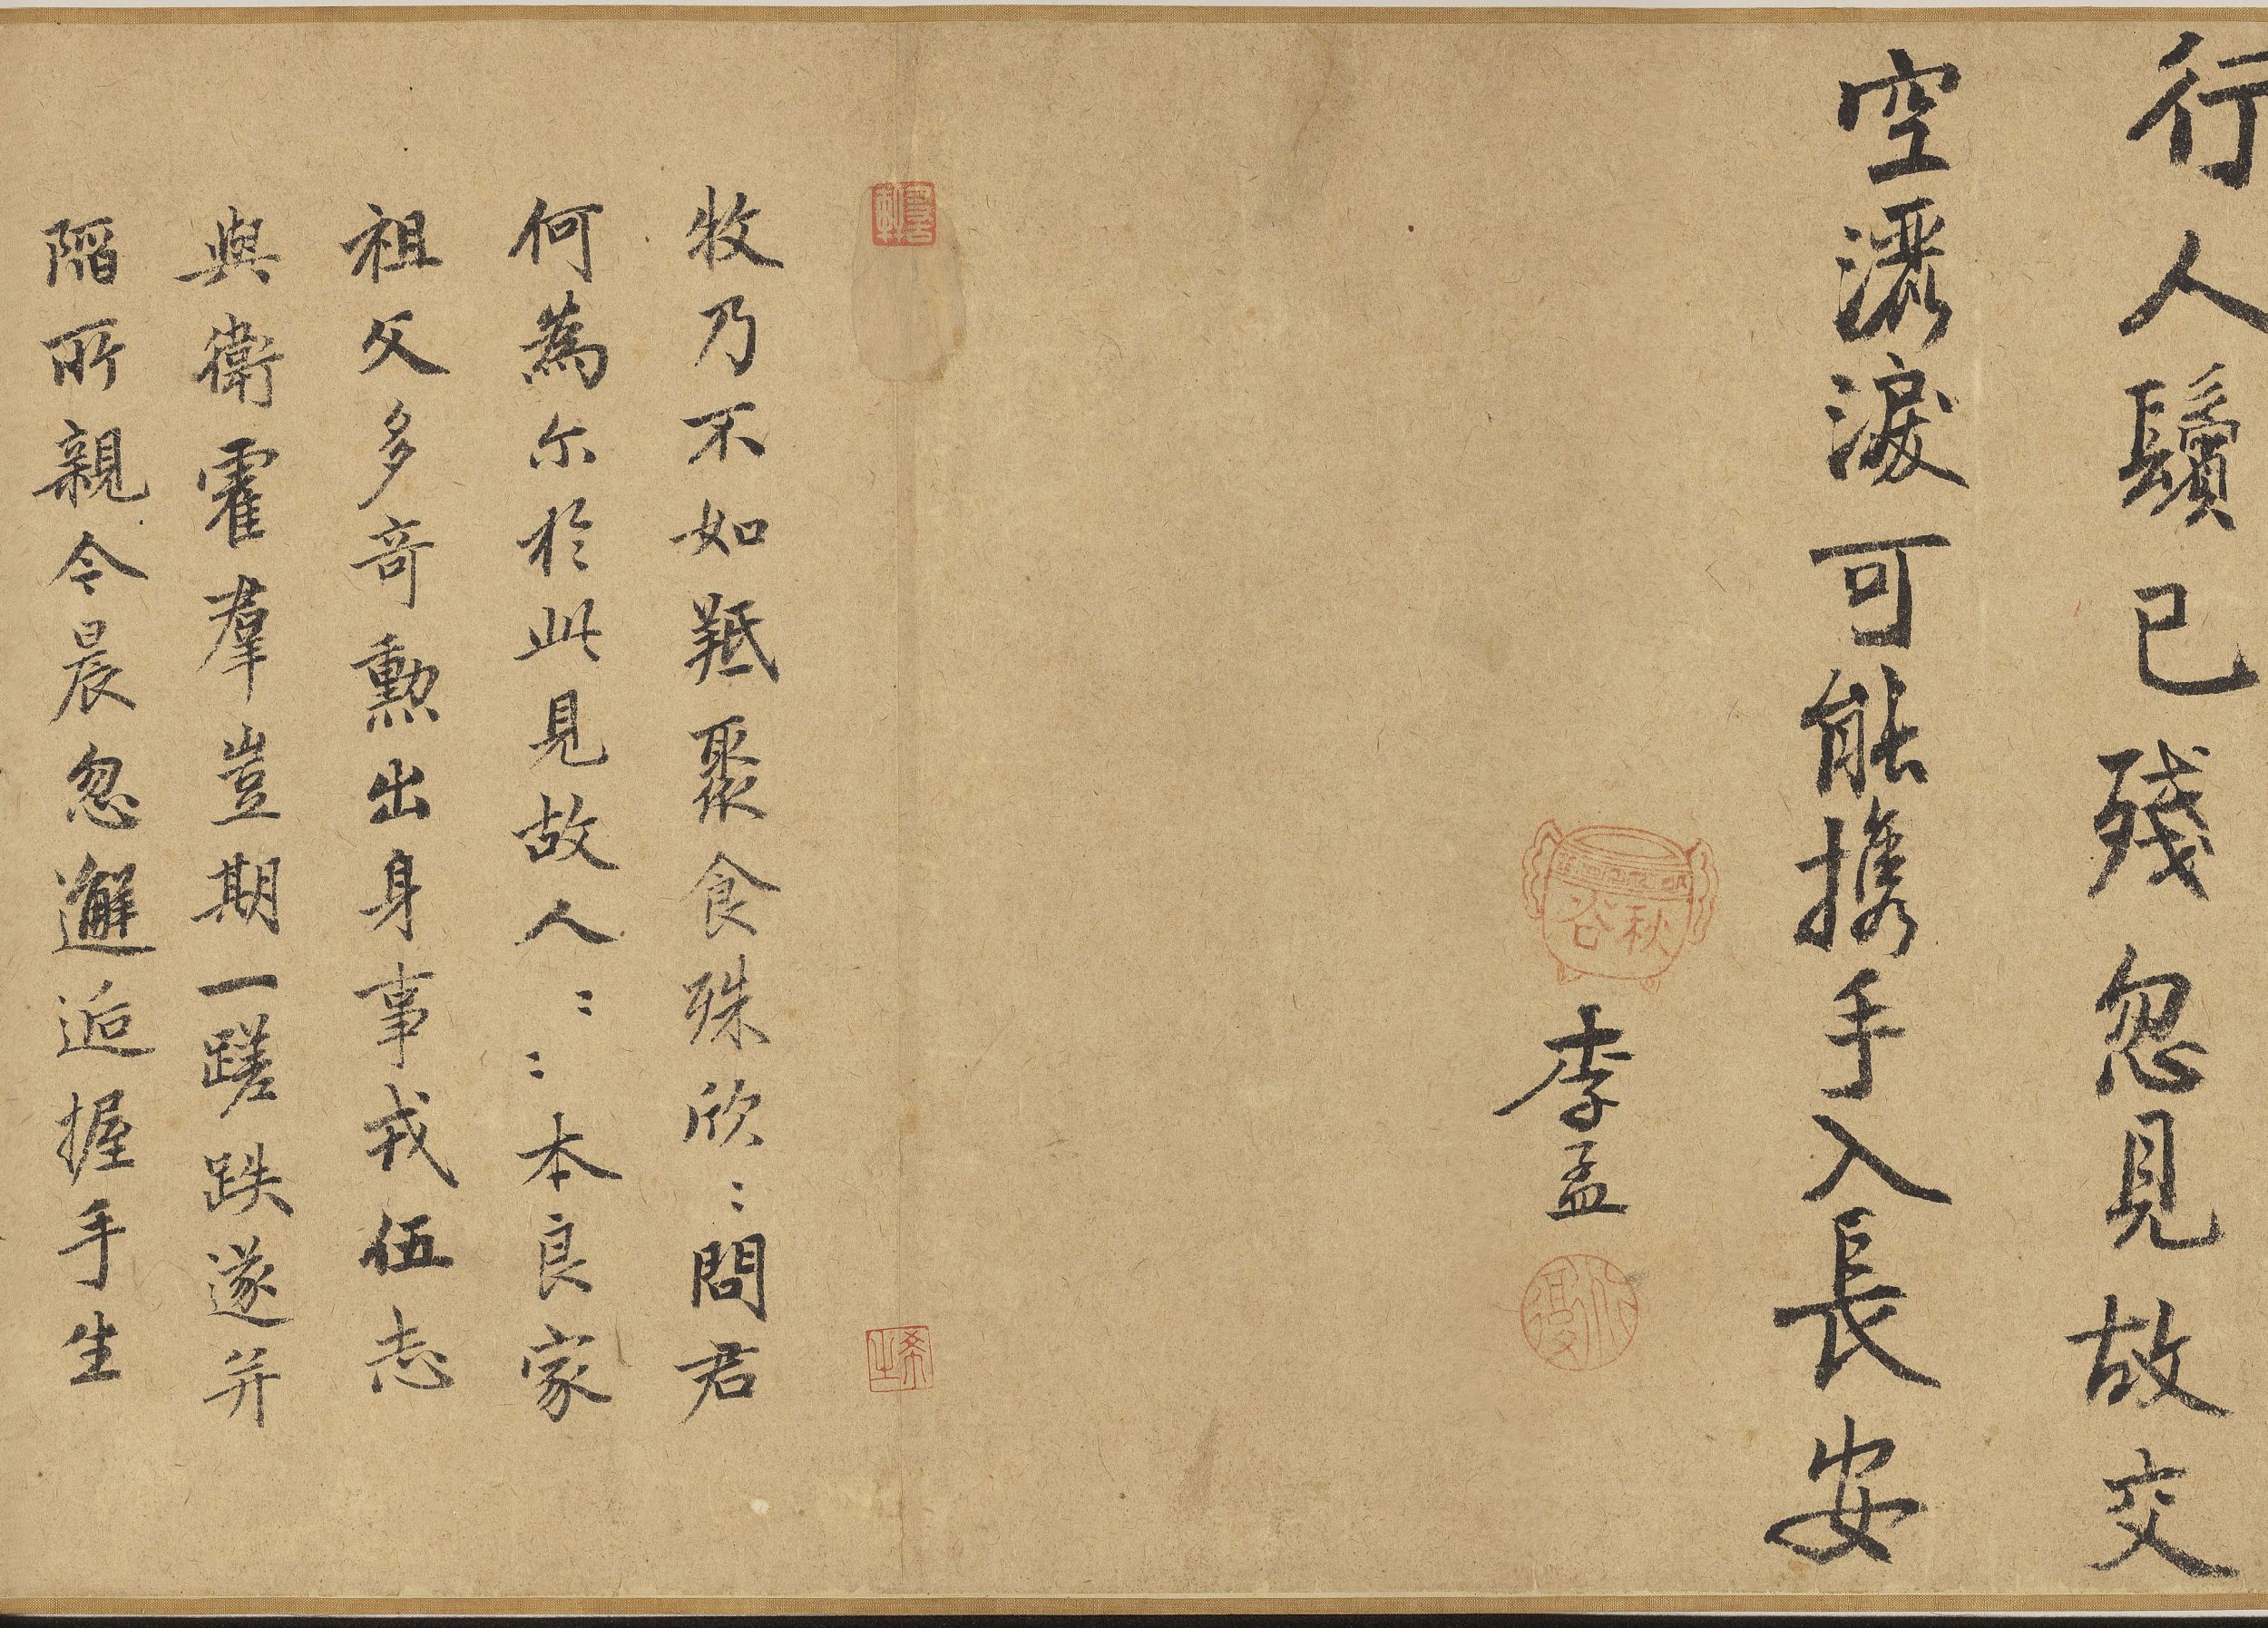 行人鬢已殘忽見故交
空灑淚可能攜手入長安
秋谷
李孟
牧乃不如羝聚食殊欣〻問君
何為尔於此見故人〻〻本良家
祖父多奇勳出身事戎伍志
與衛霍羣豈期一蹉跌遂并
陷所親今晨忽邂逅握手生